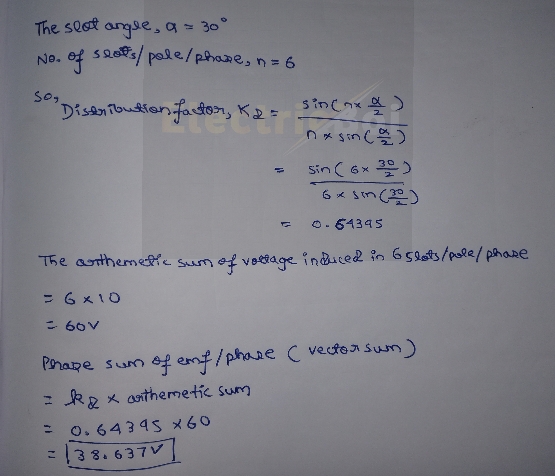 The slot angle, α = 30°
No. of slots/pole/phase, n = 6
So, Distribution factor, Kd = sin(n× α/2) / n × sin(α/2)
= sin(6× 30/2) / 6 × sin(30/2)
= 0.64395
The arthemetic sum of voltage induced in 6 slots/pole/phase
= 6 × 10
= 60V
Phase sum of emf/phase (vector sum)
= kd × arthemetic sum
= 0.64395 × 60
= 38.637V